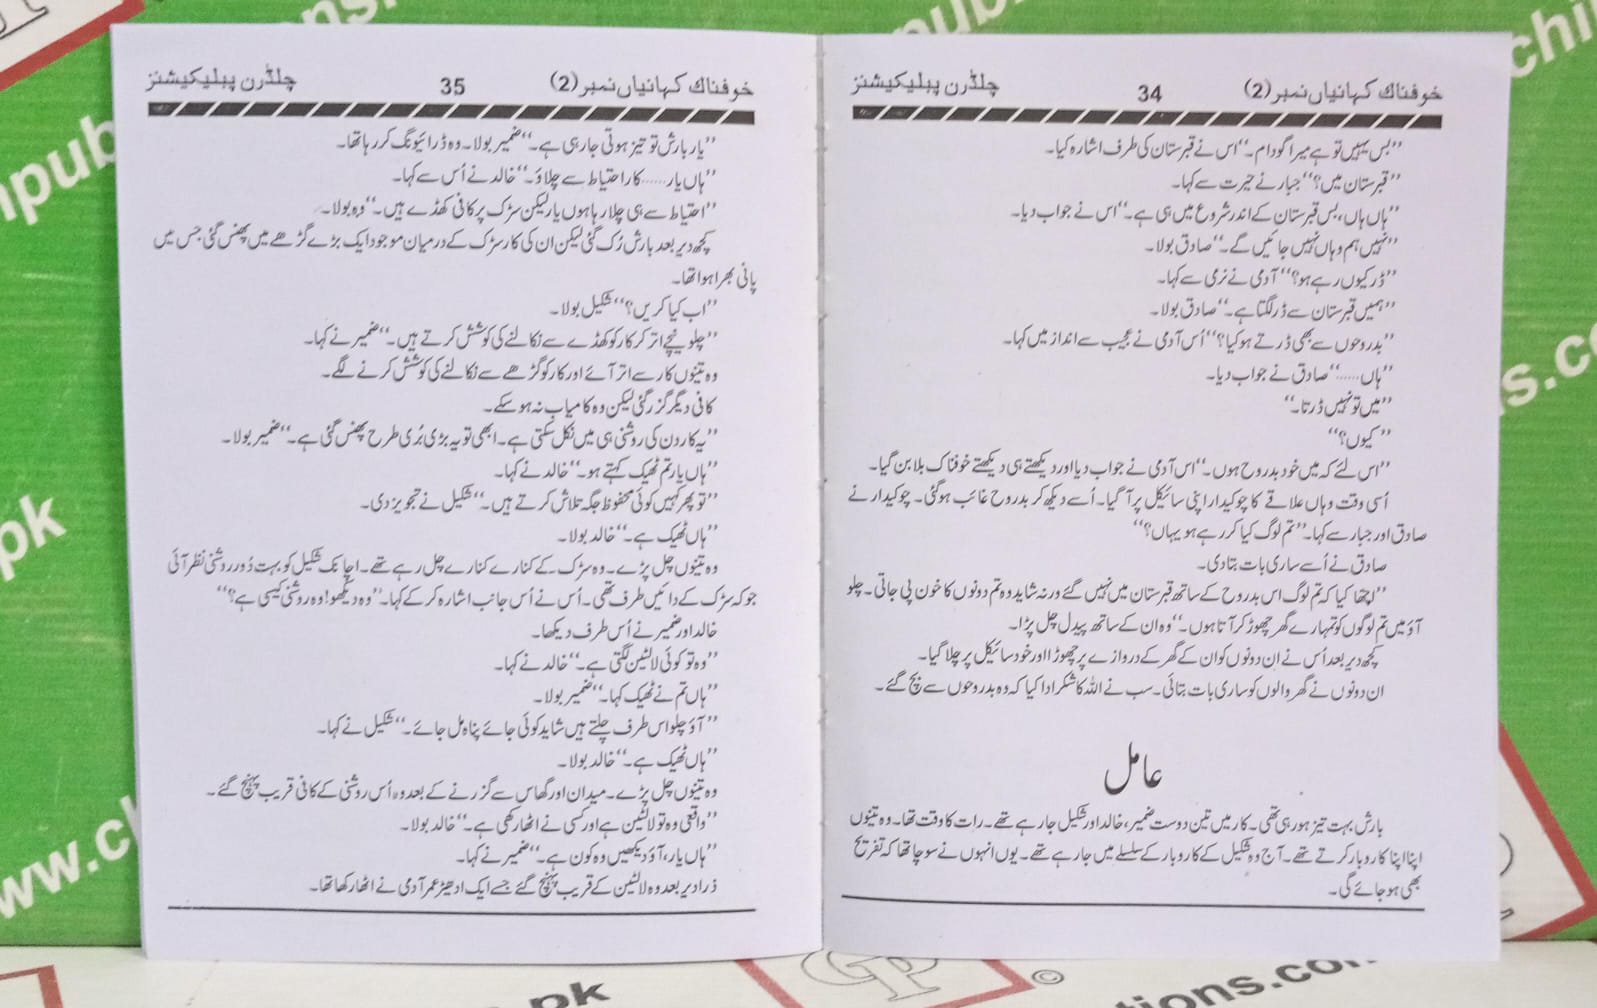 خوفناك كہانیاں نمبر (2) 34 چلڈرن پبلیکیشنز
’’بس یہیں تو ہے میرا گودام۔‘‘ اس نے قبرستان کی طرف اشارہ کیا۔
’’قبرستان میں؟‘‘ جبار نے حیرت سے کہا۔
’’ہاں ہاں، بس قبرستان کے اندر شروع میں ہی ہے۔‘‘ اس نے جواب دیا۔
’’نہیں ہم وہاں نہیں جائیں گے۔‘‘ صادق بولا۔
’’ڈر کیوں رہے ہو؟‘‘ آدمی نے نرمی سے کہا۔
’’ہمیں قبرستان سے ڈر لگتا ہے۔‘‘ صادق بولا۔
’’بدروحوں سے بھی ڈرتے ہو کیا؟‘‘ اُس آدمی نے عجیب سے انداز میں کہا۔
’’ہاں.....‘‘ صادق نے جواب دیا۔
’’میں تو نہیں ڈرتا۔‘‘
’’کیوں؟‘‘
’’اس لئے کہ میں خود بدروح ہوں۔‘‘ اس آدمی نے جواب دیا اور دیکھتے ہی دیکھتے خوفناک بلا بن گیا۔
اُسی وقت وہاں علاقے کا چوکیدار اپنی سائیکل پر آ گیا۔ اُسے دیکھ کر بدروح غائب ہوگئی۔ چوکیدار نے
صادق اور جبار سے کہا۔ ’’تم لوگ کیا کر رہے ہو یہاں؟‘‘
صادق نے اُسے ساری بات بتا دی۔
’’اچھا کیا کہ تم لوگ اس بدروح کے ساتھ قبرستان میں نہیں گئے ورنہ شاید وہ تم دونوں کا خون پی جاتی۔ چلو
آؤ میں تم لوگوں کو تمہارے گھر چھوڑ کر آتا ہوں۔‘‘ وہ ان کے ساتھ پیدل چل پڑا۔
کچھ دیر بعد اُس نے ان دونوں کو ان کے گھر کے دروازے پر چھوڑا اور خود سائیکل پر چلا گیا۔
ان دونوں نے گھر والوں کو ساری بات بتائی۔ سب نے اللہ کا شکر ادا کیا کہ وہ بدروحوں سے بچ گئے۔
عامل
بارش بہت تیز ہو رہی تھی۔ کار میں تین دوست ضمیر، خالد اور شکیل جا رہے تھے۔ رات کا وقت تھا۔ وہ تینوں
اپنا اپنا کاروبار کرتے تھے۔ آج وہ شکیل کے کاروبار کے سلسلے میں جا رہے تھے۔ یوں انہوں نے سوچا تھا کہ تفریح
بھی ہو جائے گی۔
خوفناك كہانیاں نمبر (2) 35 چلڈرن پبلیکیشنز
’’یار بارش تو تیز ہوتی جا رہی ہے۔‘‘ ضمیر بولا۔ وہ ڈرائیونگ کر رہا تھا۔
’’ہاں یار......کار احتیاط سے چلاؤ۔‘‘ خالد نے اُس سے کہا۔
’’احتیاط سے ہی چلا رہا ہوں یار لیکن سڑک پر کافی کھڈے ہیں۔‘‘ وہ بولا۔
کچھ دیر بعد بارش رُک گئی لیکن ان کی کار سڑک کے درمیان موجود ایک بڑے گڑھے میں پھنس گئی جس میں
پانی بھرا ہوا تھا۔
’’اب کیا کریں؟‘‘ شکیل بولا۔
’’چلو نیچے اتر کر کار کو کھڈے سے نکالنے کی کوشش کرتے ہیں۔‘‘ ضمیر نے کہا۔
وہ تینوں کار سے اتر آئے اور کار کو گڑھے سے نکالنے کی کوشش کرنے لگے۔
کافی دیگر گزر گئی لیکن وہ کامیاب نہ ہو سکے۔
’’یہ کار دن کی روشنی ہی میں نکل سکتی ہے۔ ابھی تو یہ بڑی بُری طرح پھنس گئی ہے۔‘‘ ضمیر بولا۔
’’ہاں یار تم ٹھیک کہتے ہو۔‘‘ خالد نے کہا۔
’’تو پھر کہیں کوئی محفوظ جگہ تلاش کرتے ہیں۔‘‘ شکیل نے تجویز دی۔
’’ہاں ٹھیک ہے۔‘‘ خالد بولا۔
وہ تینوں چل پڑے۔ وہ سڑک کے کنارے کنارے چل رہے تھے۔ اچانک شکیل کو بہت دُور روشنی نظر آئی
جو کہ سڑک کے دائیں طرف تھی۔ اُس نے اُس جانب اشارہ کر کے کہا۔ ’’وہ دیکھو! وہ روشنی کیسی ہے؟‘‘
خالد اور ضمیر نے اُس طرف دیکھا۔
’’وہ تو کوئی لالٹین لگتی ہے۔‘‘ خالد نے کہا۔
’’ہاں تم نے ٹھیک کہا۔‘‘ ضمیر بولا۔
’’آؤ چلو اس طرف چلتے ہیں شاید کوئی جائے پناہ مل جائے۔‘‘ شکیل نے کہا۔
’’ہاں ٹھیک ہے۔‘‘ خالد بولا۔
وہ تینوں چل پڑے۔ میدان اور گھاس سے گزرنے کے بعد وہ اُس روشنی کے کافی قریب پہنچ گئے۔
’’واقعی وہ تو لالٹین ہے اور کسی نے اٹھا رکھی ہے۔‘‘ خالد بولا۔
’’ہاں یار، آؤ دیکھیں وہ کون ہے۔‘‘ ضمیر نے کہا۔
ذرا دیر بعد وہ لالٹین کے قریب پہنچ گئے جسے ایک ادھیڑ عمر آدمی نے اٹھا رکھا تھا۔